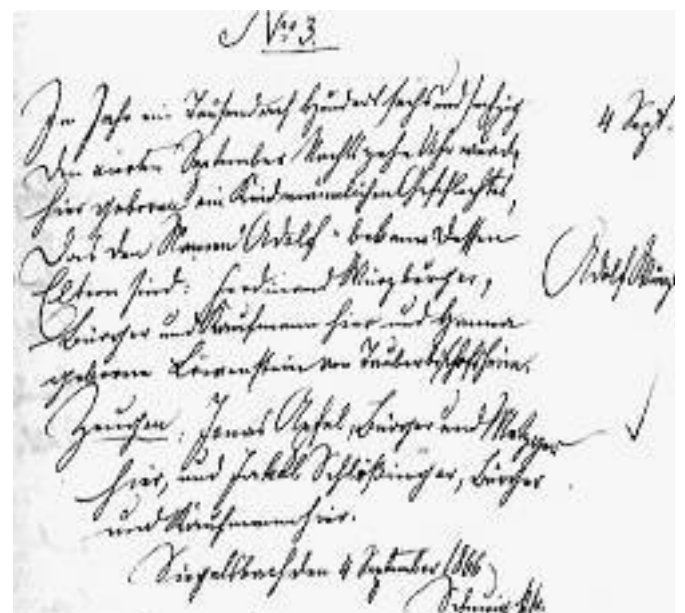 No 3.
Im Jahr ein Tausend acht Hundert sechs und sechzig
den vierten September Nachts zehn Uhr wurde
hier geboren ein Kind männlichen Geschlechtes,
das den Namen "Adolf" bekam. Dessen
Eltern sind: Ferdinand Würzburger,
Bürger und Kaufmann hier und Hanna
geborene Löwenstein von Tauberbischofsheim.
Zeugen: Jonas Apfel, Bürger und Metzger
hier, und Jakob Schlößinger, Bürger
und Kaufmann hier.
Siegelsbach den 4 September 1866
4 Sept.
Adolf Würz